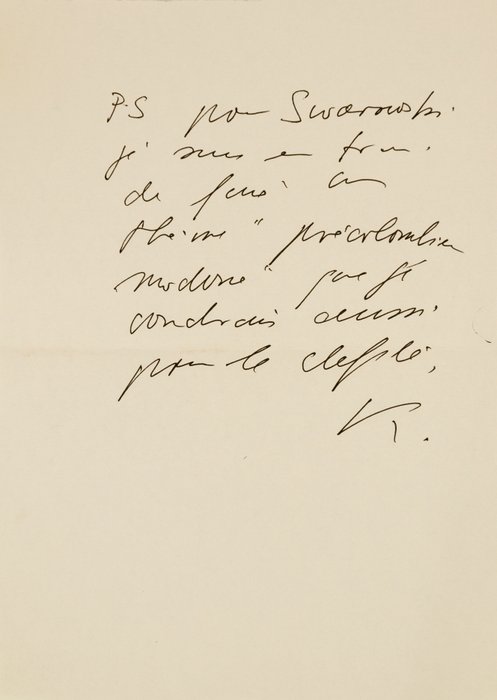 P.S pour Swarowski
je suis en train
de faire un
thème "précolombien
moderne" que je
voudrais aussi
pour le défilé,
K.